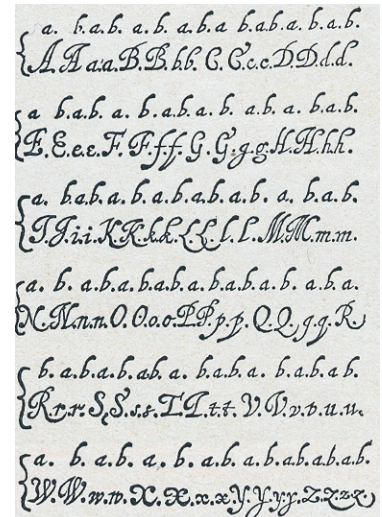 a. b.a.b. a.b. a.b.a b.a.b.a.b. b.a.b.
A A a:a.B.B.b.b. C.C.c.c.D.D.d.d.
a b.a.b. a.b. a.b.a.b. a.b. a.b.a. b.a.b.
E.E.e.e. F.F.f.f. G.G.g.g.H.H.h.h.
a. b.a.b.a b.a.b.a.b.a.b.a.b. a. b.a.b.
I.J.i.i.K.K.k.k.L.L.l.l.M.M.m.m.
a. b. a.b.a.b.a.b.a.b.a.b.a.b. a.b.a.
N.N.n.n.O.O.o.o.P.P.p.p.Q.Q.q.q.R.
b. a.b.a.b.ab.a. b.a.b.a. b.a.b.a b.
R.r.r.S.S.s.s.T.T.t.t.V.V.v.v.u.u.
a. b. a.b. a. b. a.b.a.b.ab.ab.a.b.
W.W.w.w.X.X.x.x.Y.Y.y.y.Z.Z.z.z.